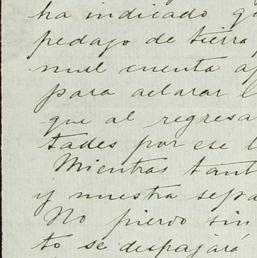 ha indicado qu
pedazo de tierra
mil cuenta a
para aclarar l
que al regresa
tades por ese l
Mientras tant
y nuestra sepa
No pierdo sin
to se despajará